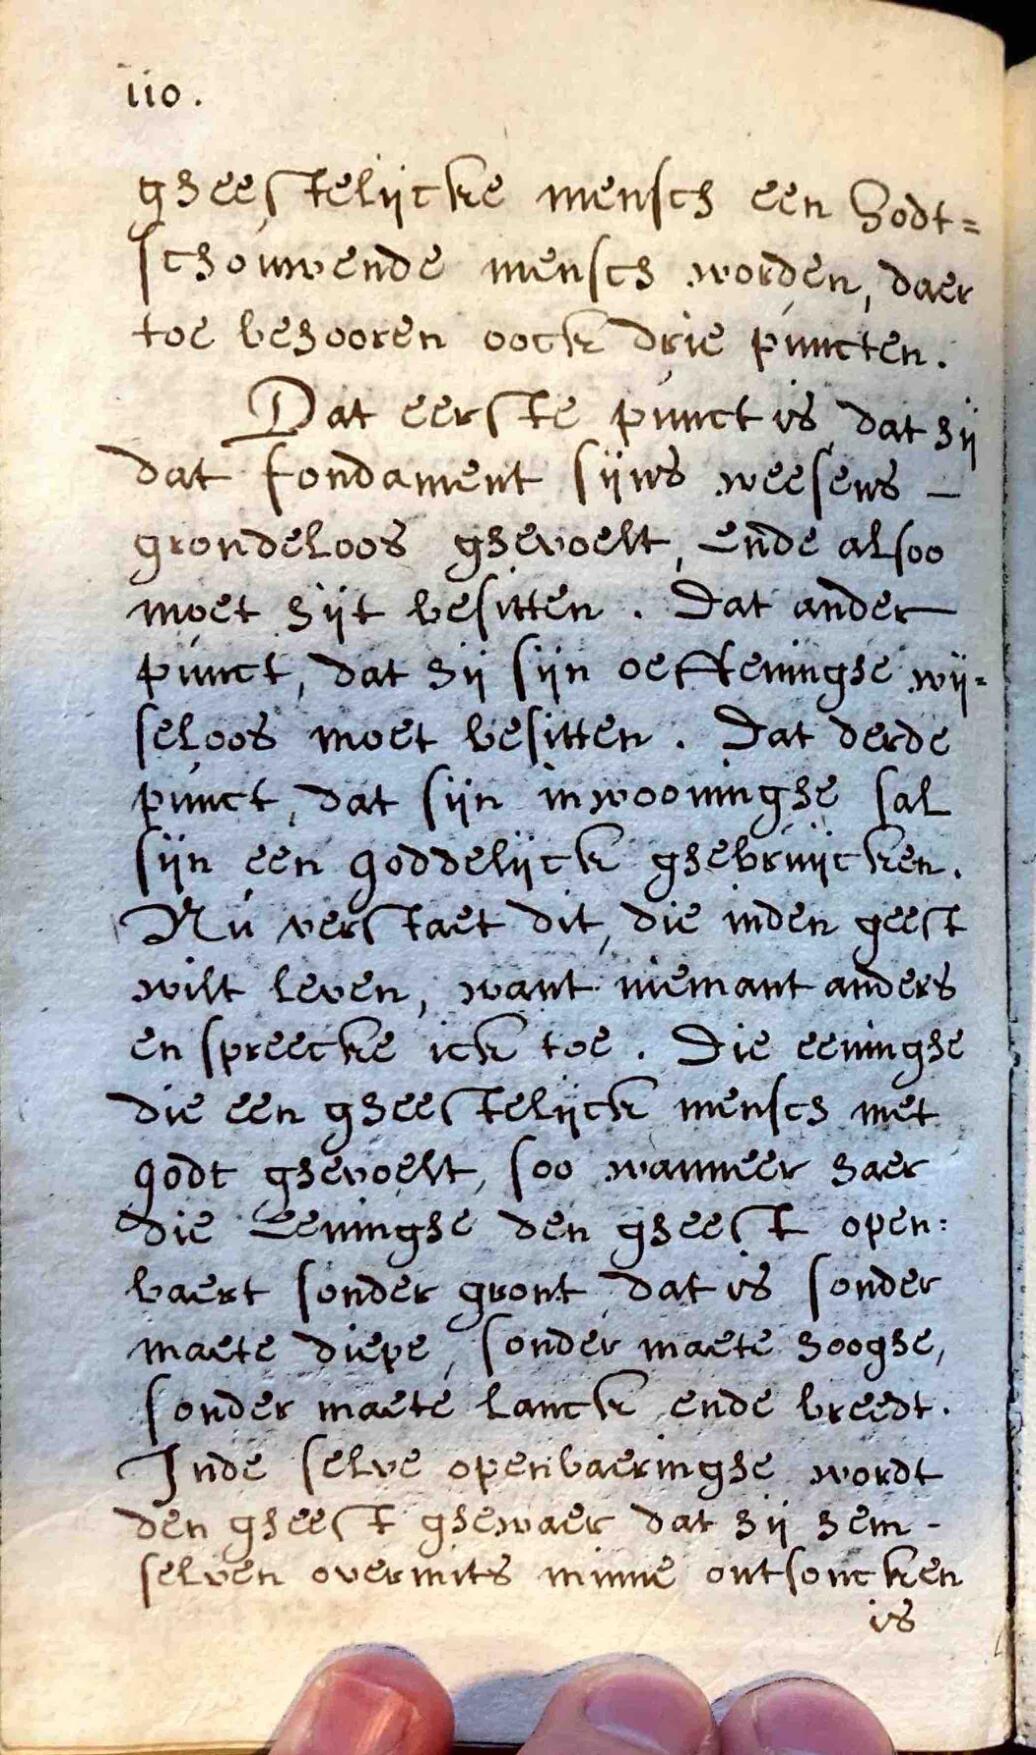 110.
gheestelijcke mensch een Godt=
schouwende mensch worden, daer
toe behooren oock drie puncten.
Dat eerste punct is, dat hij
dat fondament sijns weesens –
grondeloos ghevoelt, ende alsoo
moet hijt besitten. Dat ander
punct, dat hij sijn oeffeninghe wij=
seloos moet besitten. Dat derde
punct, dat sijn inwooninghe sal
sijn een goddelijck ghebruijcken.
Nu verstaet dit, die inden geest
wilt leven, want niemant anders
en spreecke ick toe. Die eeninghe
die een gheestelijck mensch met
godt ghevoelt, soo wanneer haer
die Eeninghe den gheest open:
baert sonder gront, dat is sonder
maete diepe, sonder maete hooghe,
sonder maete lanck ende breedt.
Inde selve openbaeringhe wordt
den gheest ghewaer dat hij hem-
selven overmits minne ontsoncken
is